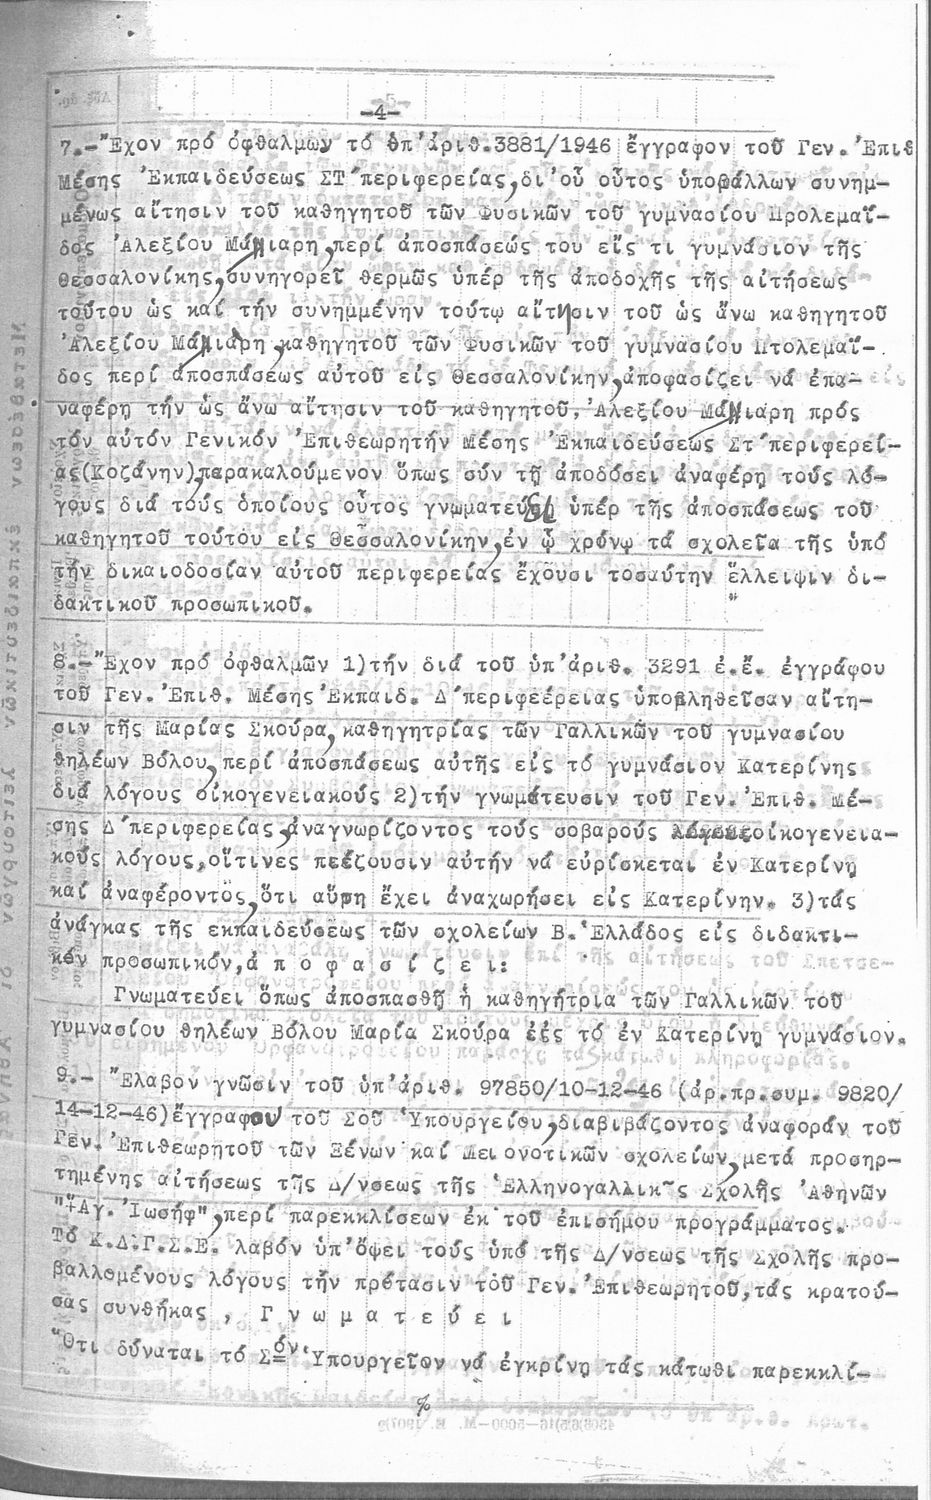 -4-
7.-Ἔχον πρό ὀφθαλμων τό ὑπ'ἀριθ.3881/1946 ἔγγραφον τοῦ Γεν.Ἐπιθ
Μέσης Ἐκπαιδεύσεως ΣΤ΄περιφερείας,δι'οὗ οὗτος ὑποβάλλων συνημ-
μένως αἴτησιν τοῦ καθηγητοῦ τῶν Φυσικῶν τοῦ γυμνασίου Προλεμαΐ-
δος Ἀλεξίου Μάλλιαρη,περί ἀποσπάσεώς του εἴς τι γυμνάσιον τῆς
Θεσσαλονίκης,συνηγορεῖ θερμῶς ὑπέρ τῆς ἀποδοχῆς τῆς αἰτήσεως
τούτου ὡς καί τήν συνημμένην τούτῳ αἴτησιν τοῦ ὡς ἄνω καθηγητοῦ
Ἀλεξίου Μάλλιαρη,καθηγητοῦ τῶν Φυσικῶν τοῦ γυμνασίου Πτολεμαΐ-
δος περί ἀποσπάσεως αὐτοῦ εἰς Θεσσαλονίκην,ἀποφασίζει νά ἐπα-
ναφέρῃ τήν ὡς ἄνω αἴτησιν τοῦ καθηγητοῦ,Ἀλεξίου Μάλλιαρη πρός
τόν αὐτόν Γενικόν Ἐπιθεωρητήν Μέσης Ἐκπαιδεύσεώς Στ΄περιφερεί-
ας(Κοζάνην),παρακαλούμενον ὅπως σύν τῇ ἀποδόσει ἀναφέρῃ τούς λό-
γους διά τούς ὁποίους οὗτος γνωματεύει ὑπέρ τῆς ἀποσπάσεως τοῦ
καθηγητοῦ τούτου εἰς Θεσσαλονίκην,ἐν ᾧ χρόνῳ τά σχολεῖα τῆς ὑπό
τήν δικαιοδοσίαν αὐτοῦ περιφερείας ἔχουσι τοσαύτην ἔλλειψιν δι-
δακτικοῦ προσωπικοῦ.
8.-Ἔχον πρό ὀφθαλμῶν 1)τήν διά τοῦ ὑπ'ἀριθ. 3291 ἐ.ἔ. ἐγγράφου
τοῦ Γεν.Ἐπιθ. Μέσης Ἐκπαιδ. Δ΄περιφεέρειας ὑποβληθεῖσαν αἴτη-
σιν τῆς Μαρίας Σκούρα,καθηγητρίας τῶν Γαλλικῶν τοῦ γυμνασίου
θηλέων Βόλου,περί ἀποσπάσεως αὐτῆς εἰς τό γυμνάσιον Κατερίνης
διά λόγους οἰκογενειακούς 2)τήν γνωμάτευσιν τοῦ Γεν.Ἐπιθ. Μέ-
σης Δ΄περιφερείας,ἀναγνωρίζοντος τούς σοβαρούς οἰκογενεια-
κούς λόγους,οἵτινες πεέζουσιν αὐτήν νά εὑρίσκεται ἐν Κατερίνῃ
καί ἀναφέροντος,ὅτι αὕτη ἔχει ἀναχωρήσει εἰς Κατερίνην. 3)τάς
ἀνάγκας τῆς ἐκπαιδεύσεως τῶν σχολείων Β.Ἑλλάδος εἰς διδακτι-
κόν προσωπικόν,ἀ π ο φ α σ ί ζ ε ι:
Γνωματεύει ὅπως ἀποσπασθῇ ἡ καθηγήτρια τῶν Γαλλικῶν τοῦ
γυμνασίου θηλέων Βόλου Μαρία Σκούρα ἐἰς τό ἐν Κατερίνῃ γυμνάσιον.
9.- Ἔλαβον γνῶσιν τοῦ ὑπ'ἀριθ. 97850/10-12-46 (ἀρ.πρ.συμ. 9820/
14-12-46)ἔγγραφου τοῦ Σοῦ Ὑπουργείου,διαβιβάζοντος ἀναφοράν τοῦ
Γεν.Ἐπιθεωρητοῦ τῶν Ξένων καί Μειονοτικῶν σχολείων,μετά προσηρ-
τημένης αἰτήσεως τῆς Δ/νσεως τῆς Ἑλληνογαλλικῆς Σχολῆς Ἀθηνῶν
"Ἅγ. Ἰωσήφ",περί παρεκκλίσεων ἐκ τοῦ ἐπισήμου προγράμματος.
Τό Κ.Δ.Γ.Σ.Ε. λαβόν ὑπ'ὄψει τούς ὑπό τῆς Δ/νσεως τῆς Σχολῆς προ-
βαλλομένους λόγους τήν πρότασιν τοῦ Γεν.Ἐπιθεωρητοῦ,τάς κρατού-
σας συνθήκας , Γ ν ω μ α τ ε ύ ε ι
Ὅτι δύναται τό Σόν Ὑπουργεῖον νά ἐγκρίνῃ τάς κάτωθι παρεκκλί-
%